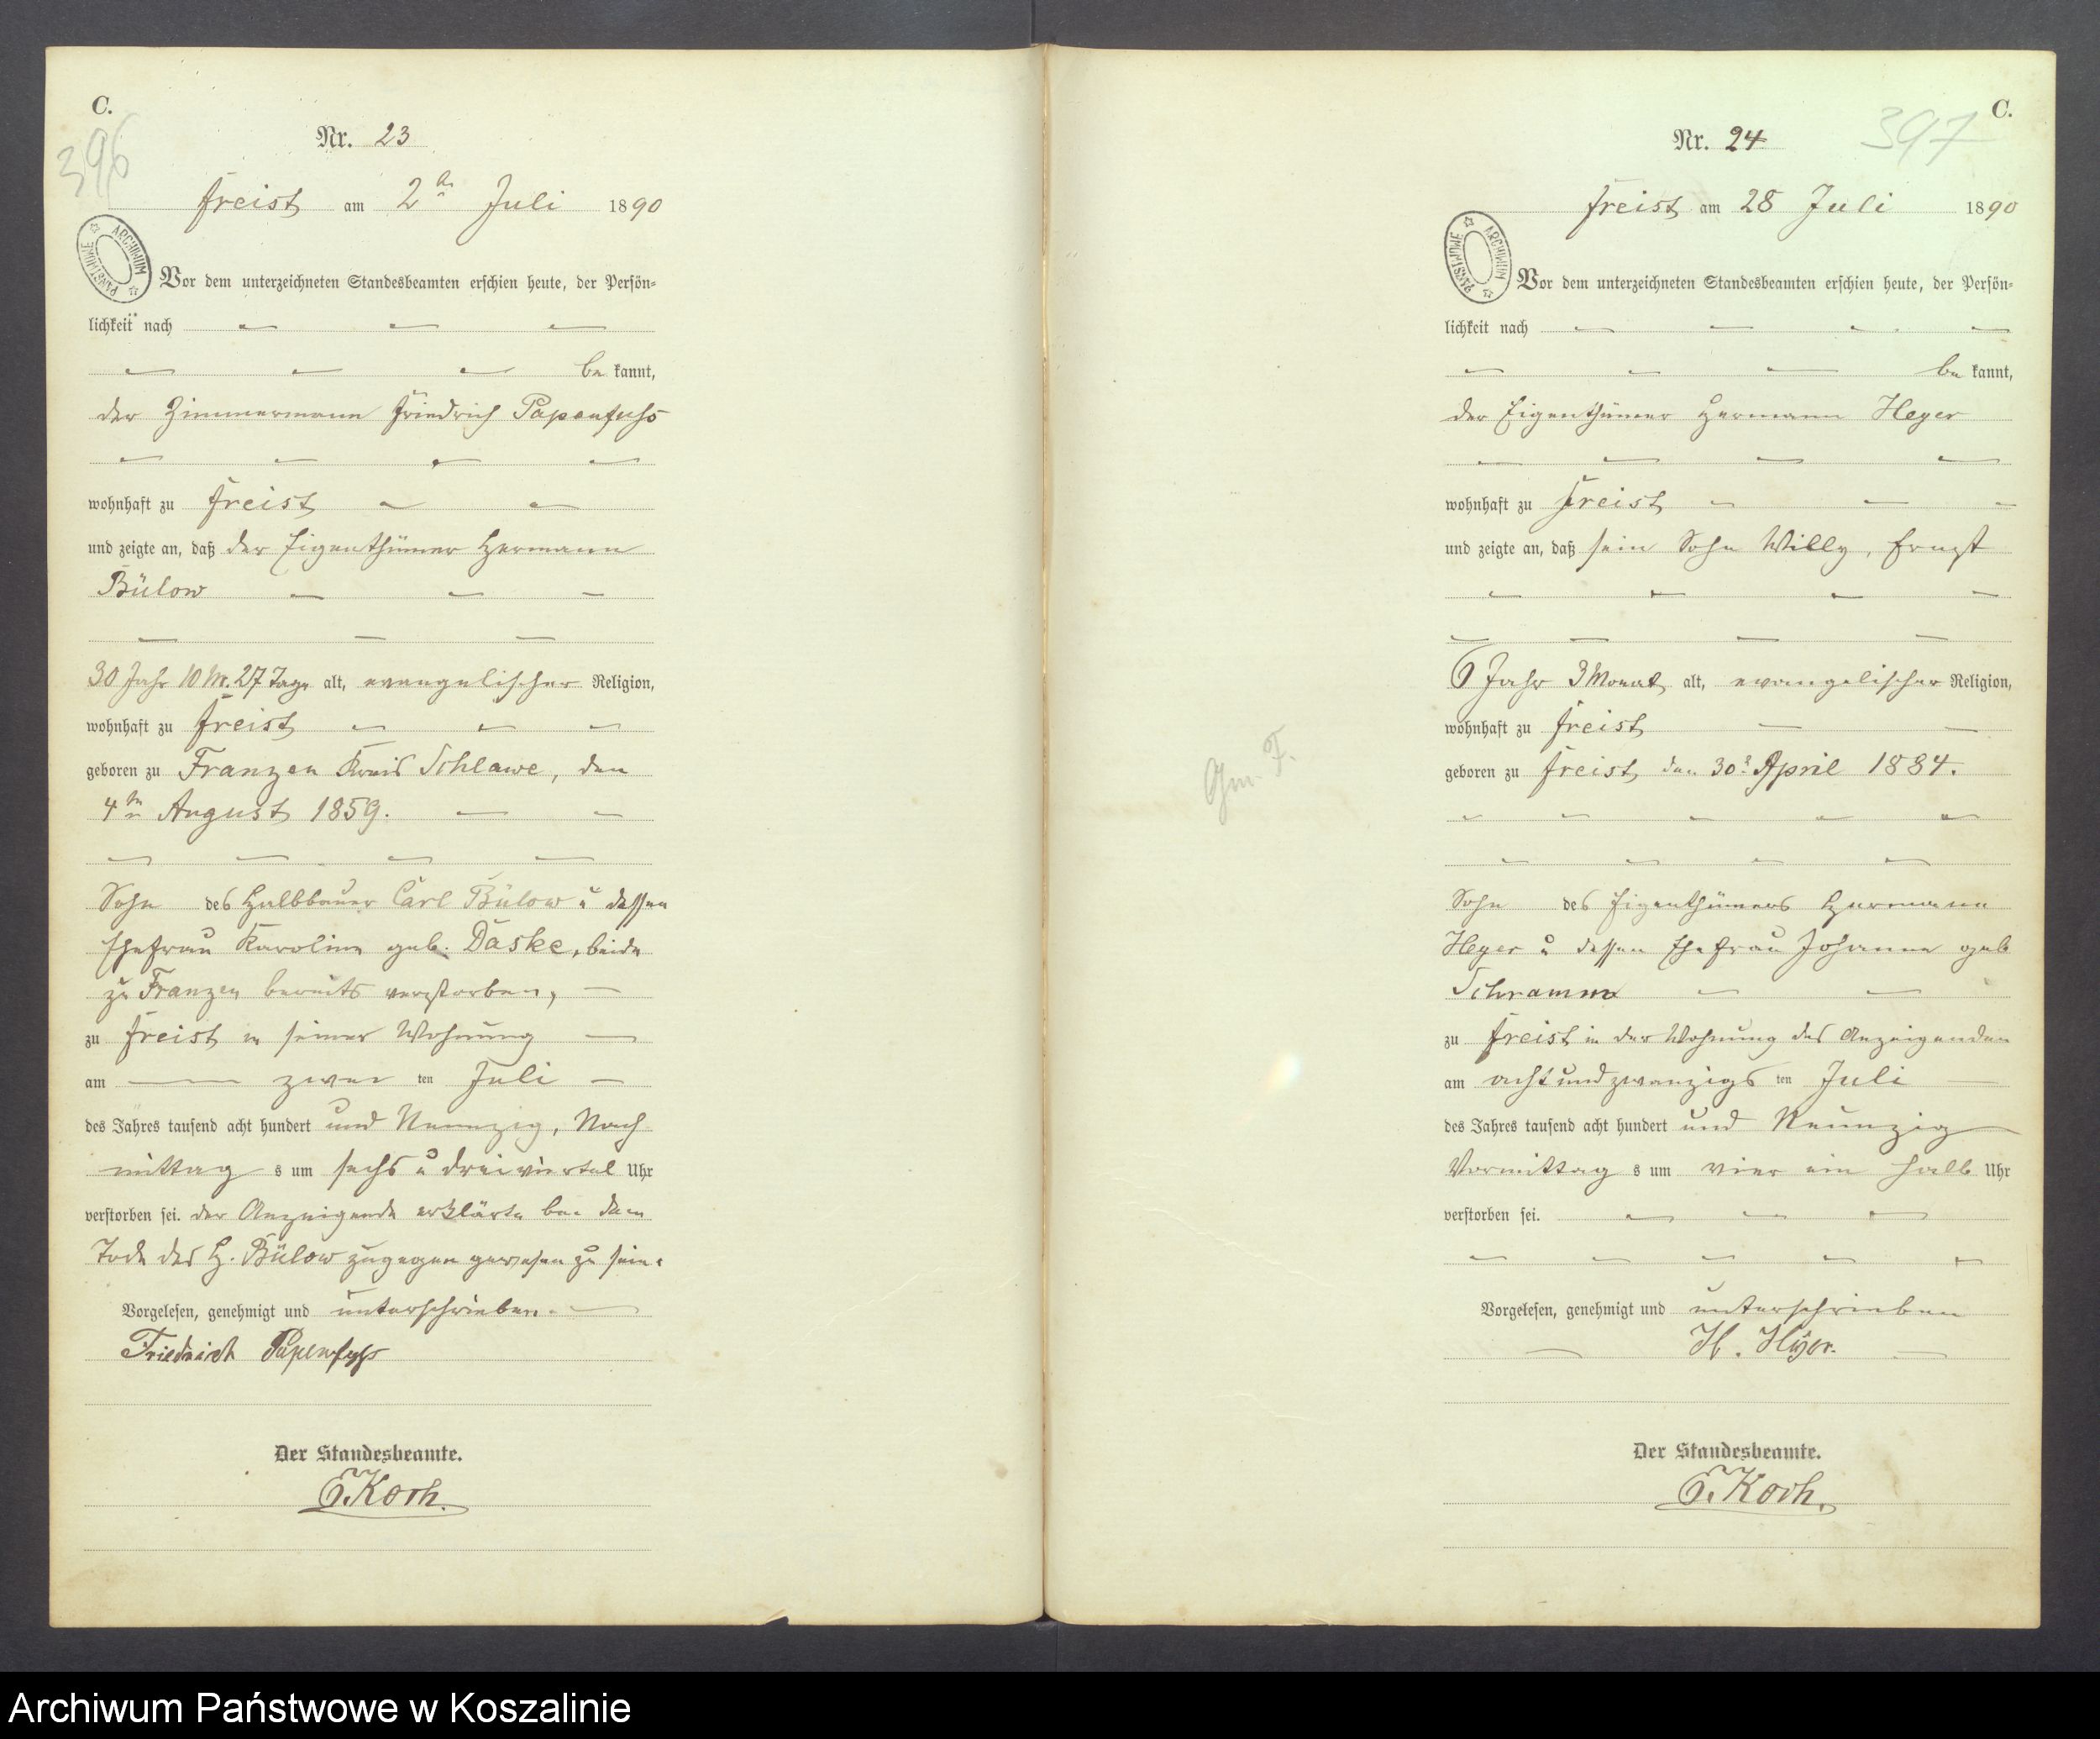 C.
396
Nr. 23
Freist am 2ten Juli 1890
ARCHIWUM PAŃSTWOWE
Vor dem unterzeichneten Standesbeamten erschien heute, der Persön-
lichkeit nach
be kannt,
der Zimmermann Friedrich Papenfuhs
wohnhaft zu Freist
und zeigte an, daß der Eigenthümer Hermann
Bülow
30 Jahr 10 M. 27 Tage alt, evangelischer Religion,
wohnhaft zu Freist
geboren zu Franzen Kreis Schlawe, den
4ten August 1859.
Sohn des Halbbauer Carl Bülow u dessen
Ehefrau Karoline geb. Daske, beide
zu Franzen bereits verstorben,
zu Freist in seiner Wohnung
am zwei ten Juli
des Jahres tausend acht hundert und Neunzig, Nach
mittag s um sechs u dreiviertel Uhr
verstorben sei. der Anzeigende erklärte bei dem
Tode des H. Bülow zugegen gewesen zu sein.
Vorgelesen, genehmigt und unterschrieben.
Friedrich Papenfuhs
Der Standesbeamte.
E. Koch.
C.
397
Nr. 24
Freist am 28 Juli 1890
ARCHIWUM PAŃSTWOWE
Vor dem unterzeichneten Standesbeamten erschien heute, der Persön-
lichkeit nach
be kannt,
der Eigenthümer Hermann Heyer
wohnhaft zu Freist
und zeigte an, daß sein Sohn Willy, Ernst
6 Jahr 3 Monat alt, evangelischer Religion,
wohnhaft zu Freist
geboren zu Freist, den 30t April 1884.
Sohn des Eigenthümers Hermann
Heyer u dessen Ehefrau Johanne geb
Schramm
zu Freist in der Wohnung des Anzeigenden
am acht und zwanzigs ten Juli
des Jahres tausend acht hundert und Neunzig
Vormittag s um vier ein halb Uhr
verstorben sei.
Vorgelesen, genehmigt und unterschrieben
H. Heyer.
Der Standesbeamte.
E. Koch.
Archiwum Państwowe w Koszalinie